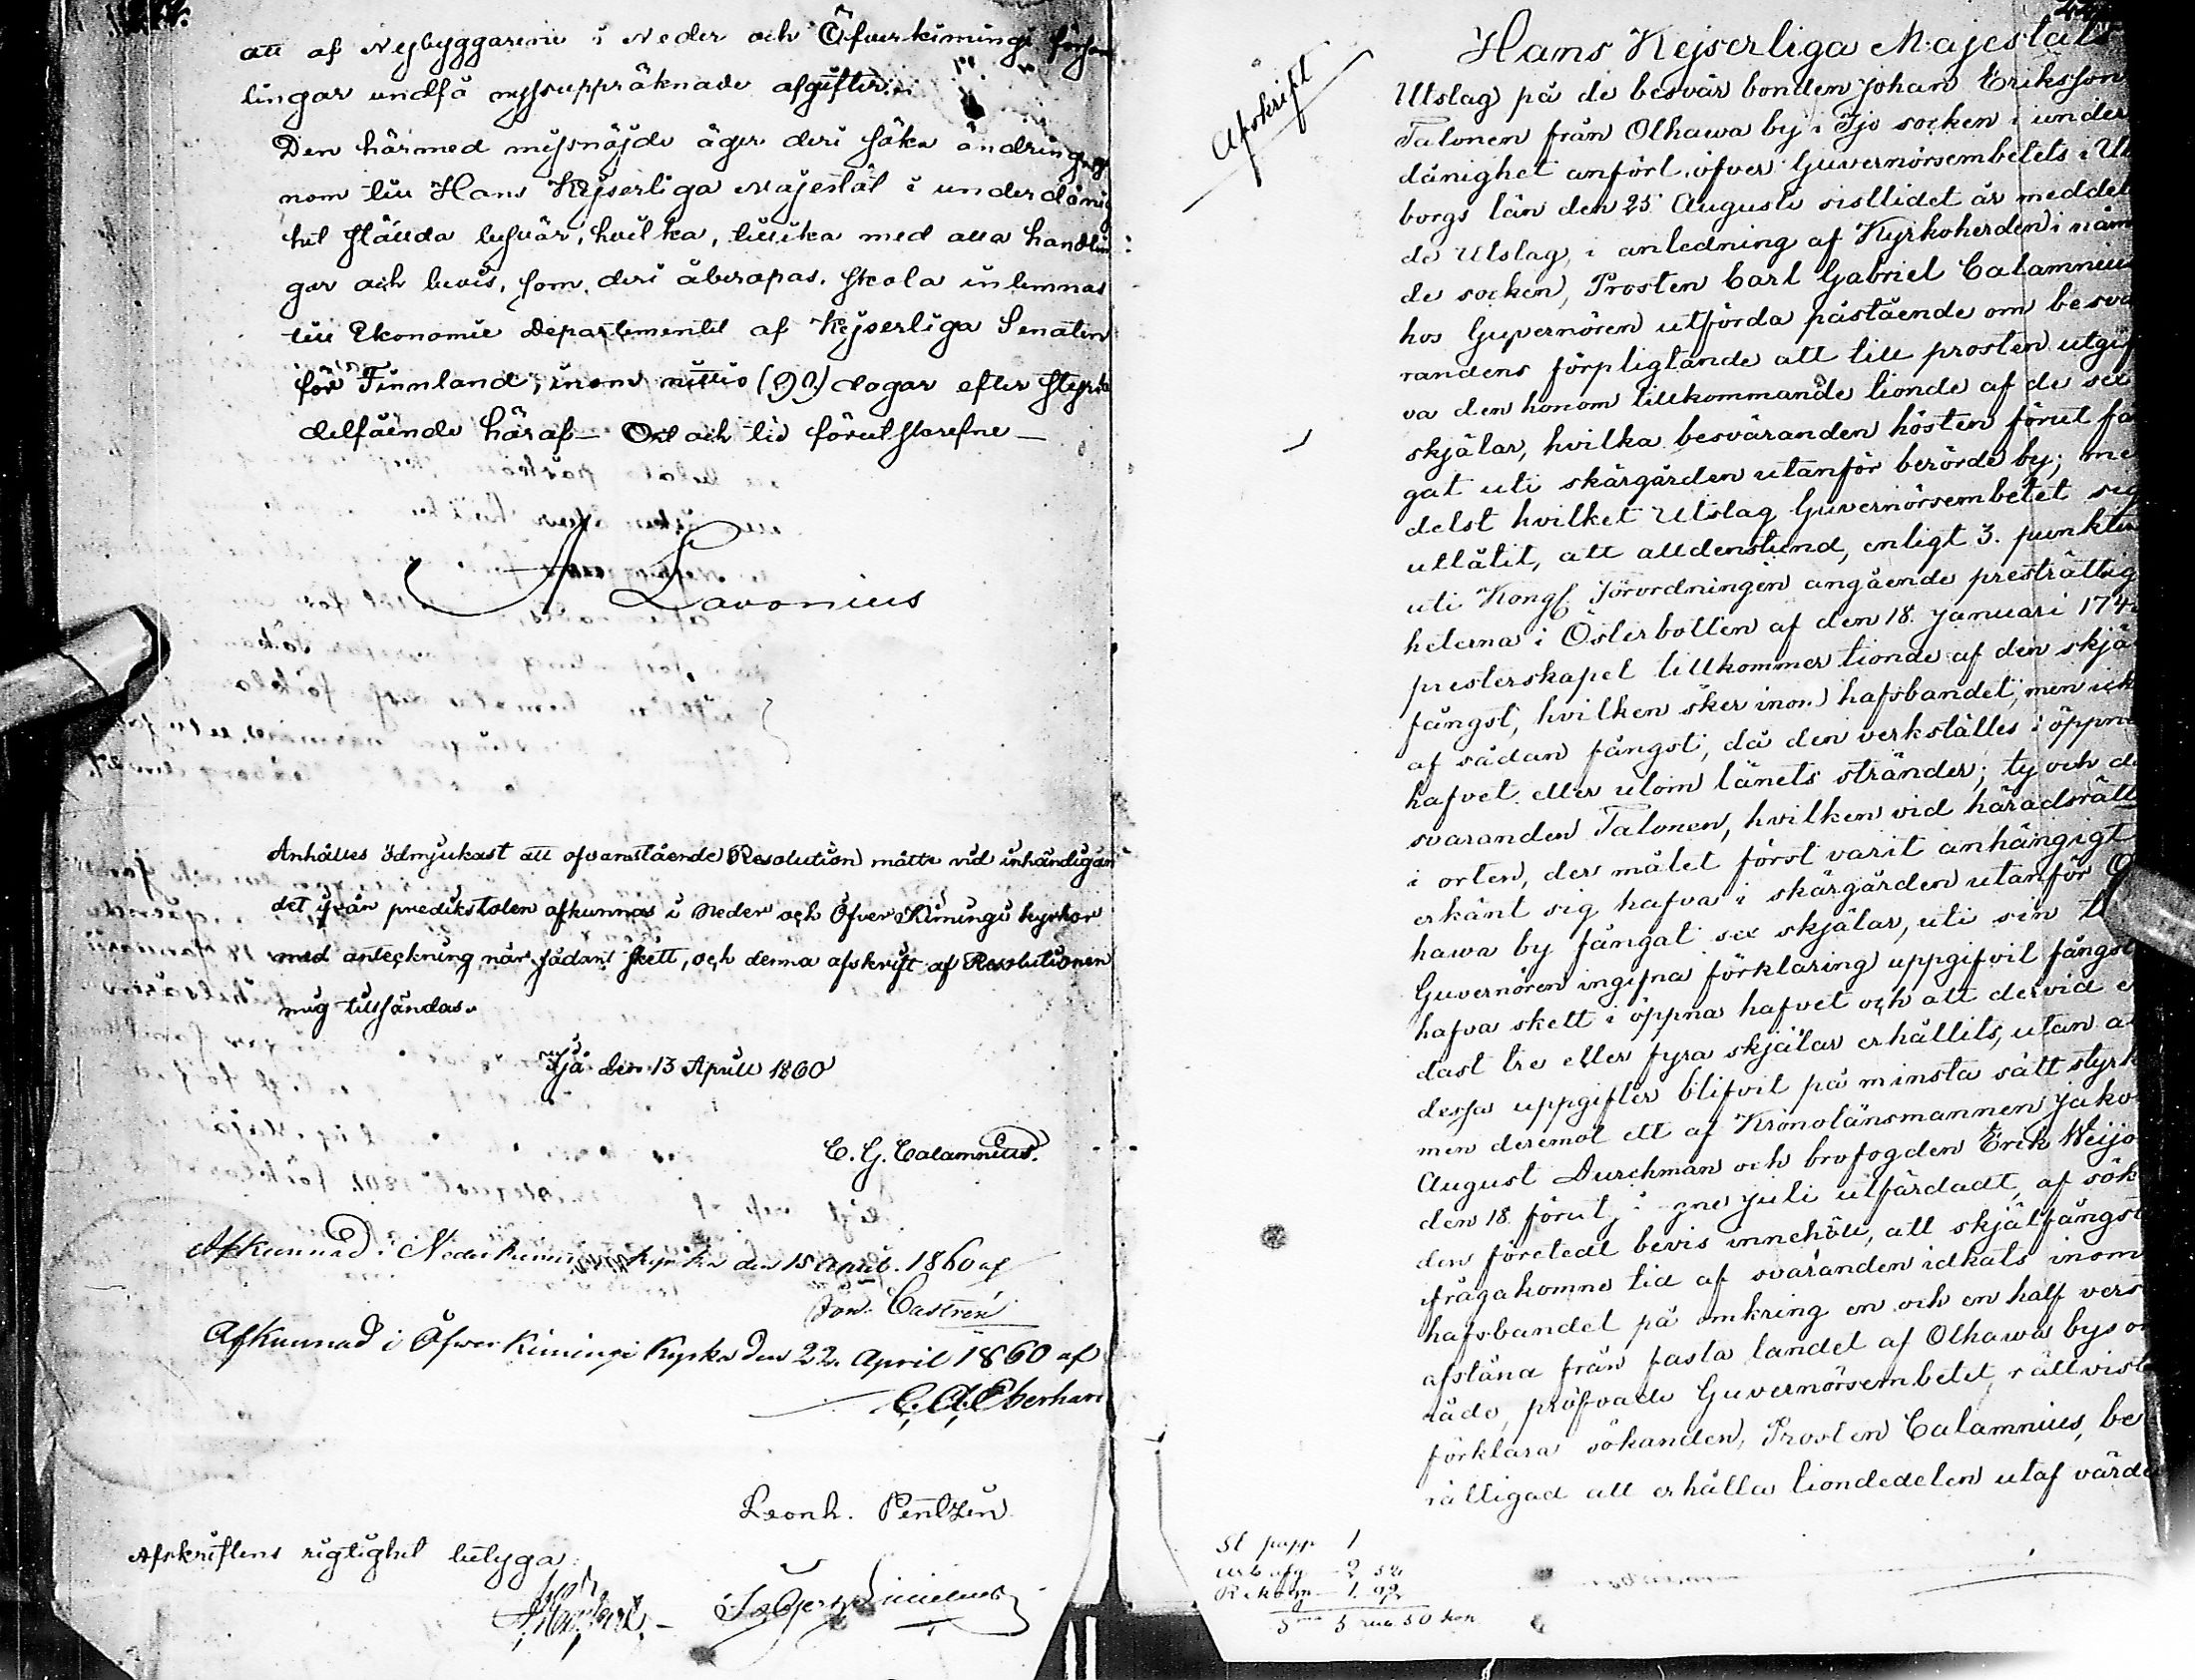 att af Nybyggarene i Neder och Öfverkimingi försam
lingar undfå nyssuppräknade afgifter.
Den härmed missnöjde äger deri söka ändring ge
nom till Hans Kejserliga Majestät i underdånig
het ställda besvär, hvilka, tillika med alla handlin:
gar och bevis, som deri åberopas, skola inlemnas
till Ekonomie Departementet af Kejserliga Senaten
för Finnland, inom nittio (90) dagar efter styrkt
delfående häraf — Ort och tid förutskrefne —
A Lavonius
Anhålles ödmjukast att ofvanstående Resolution måtte vid inhändigan
det ifrån predikstolen afkunnas i Neder och Öfver Kimingi kyrkor
med anteckning när sådant skett, och denna afskrift af Resolutionen
mig tillsändas.
Ijå den 13 April 1860
C. G. Calamnius.
Afkunnad i Neder Kimingi kyrka den 15 April. 1860 af
Jon. Castrén
Afkunnad i Öfver Kimingi Kyrka den 22. April 1860 af
C. A. Eberhard
Leonh. Pentzin
Afskriftens rigtighet betyga:
Afskrift
Hans Kejserliga Majestäts
Utslag på de besvär bonden Johan Eriksson
Talonen från Olhawa by i Ijo socken i under
dånighet anfört öfver Guvernörsembetets i Uleå
borgs län den 25 Augusti sistlidet år meddela
de Utslag, i anledning af Kyrkoherden i näm
de socken, Prosten Carl Gabriel Calamnius
hos Guvernören utförda påstående om besvä
randens förpligtande att till prosten utgif
va den honom tillkommande tionde af de sex
skjälar, hvilka besväranden hösten förut fån
gat uti skärgården utanför berörde by; me
delst hvilket Utslag Guvernörsembetet sig
utlåtit, att alldenstund, enligt 3. punkten
uti Kongl. Förordningen angående presträttig
heterna i Österbotten af den 18. Januari 174
presterskapet tillkommer tionde af den skjäl
fångst, hvilken sker inom hafsbandet, men icke
af sådan fångst, då den verkställes i öppna
hafvet eller utom länets stränder; ty och då
svaranden Talonen, hvilken vid häradsrätten
i orten, der målet först varit anhängigt
erkänt sig hafva i skärgården utanför Ol
hawa by fångat sex skjälar, uti sin till
Guvernören ingifna förklaring uppgifvit fångsten
hafva skett i öppna hafvet och att dervid en
dast tre eller fyra skjälar erhållits, utan att
dessa uppgifter blifvit på minsta sätt styrkta
men deremot ett af Kronolänsmannen Jakob
August Durchman och brofogden Erik Weijo
den 18 förut i gne Juli utfärdadt, af sökan
den företedt bevis innehöll, att skjälfångst
ifrågakomne tid af svaranden idkats inom
hafsbandet på omkring en och en half verst
afstånd från fasta landet af Olhawa bys om
råde, pröfvade Guvernörsembetet rättvist
förklara sökanden, Prosten Calamnius, be
rättigad att erhålla tiondedelen utaf värdet
St papp 1
Utl afg 2 52
Rekogn 1. 92
5 rub. 50 kop